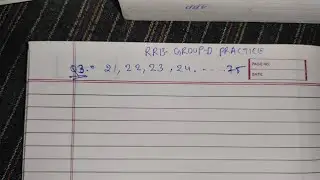 RRB GROUP D PRACTICE
Q3.* 21, 22, 23, 24. . . . . 75
PAGE NO.
DATE